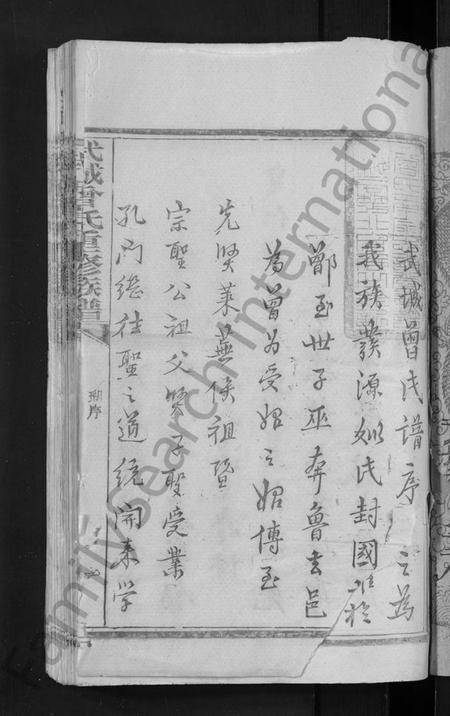 武城曾氏譜序
之為
我族發源姒氏封國
鄫至世子巫奔魯去邑
為曾為受姓之始傳至
先賢萊蕪侯祖暨
宗聖公祖父賢子聖受業
孔門繼往聖之道統開來學
武城曾氏重修族譜
序
FamilySearch International